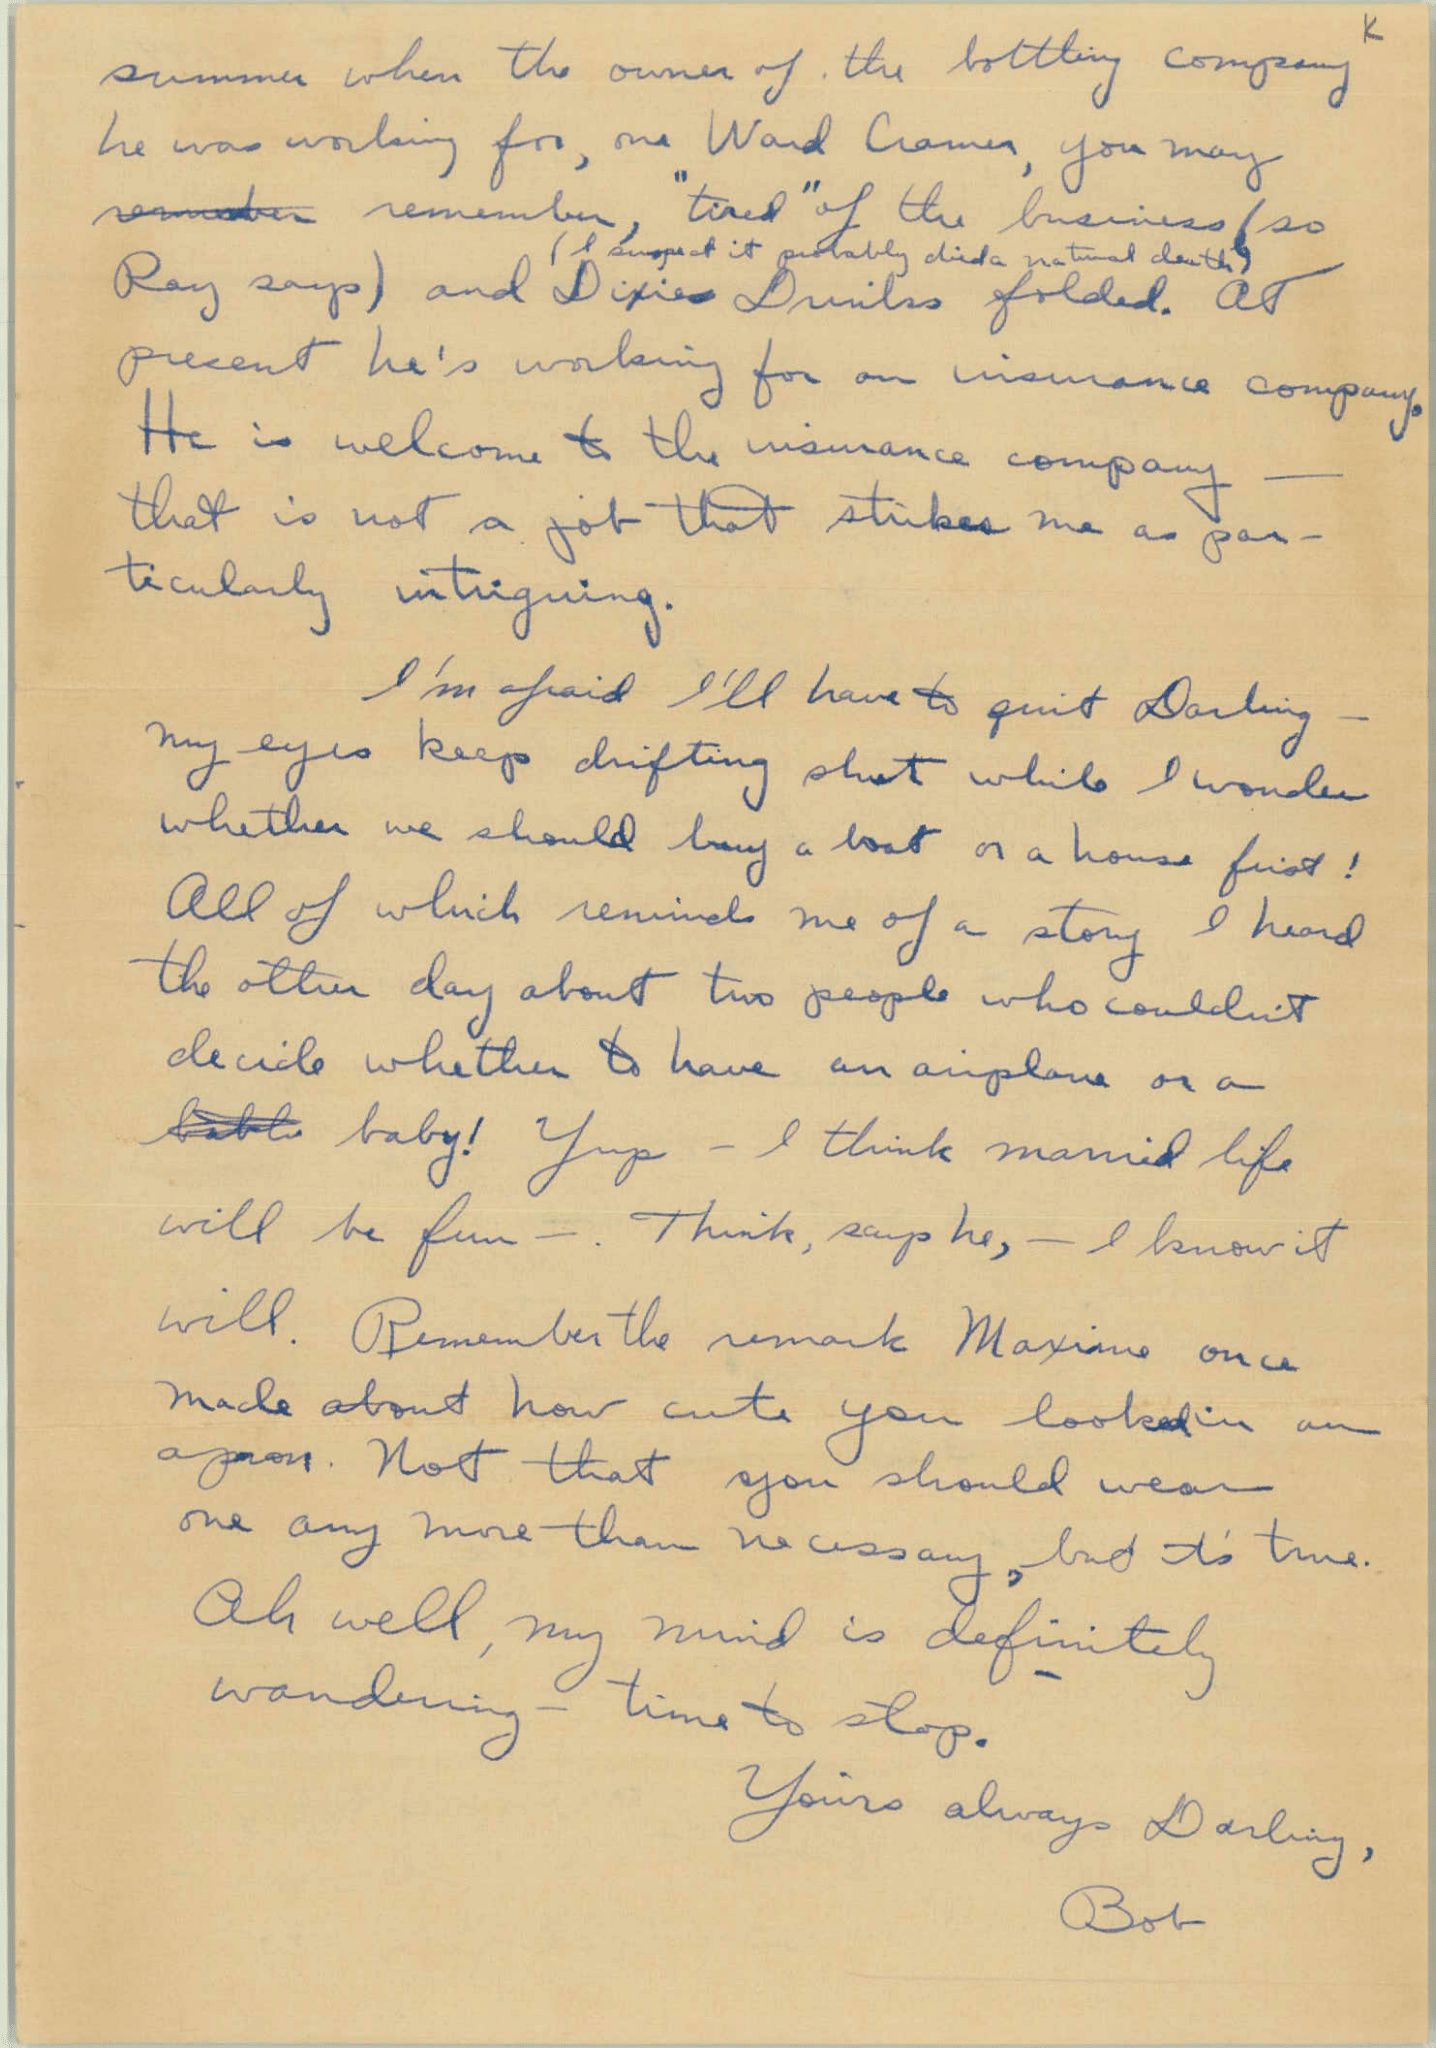 K
summer when the owner of the bottling company
he was working for, one Ward Cramer, you may
remember remember, "tired" of the business (so
(I suspect it probably died a natural death)
Ray says) and Dixie Drinks folded. At
present he's working for an insurance company.
He is welcome to the insurance company —
that is not a job that strikes me as par-
ticularly intriguing.
I'm afraid I'll have to quit Darling —
my eyes keep drifting shut while I wonder
whether we should buy a boat or a house first!
All of which reminds me of a story I heard
the other day about two people who couldn't
decide whether to have an airplane or a
baby! Yup — I think married life
will be fun —. Think, says he, — I know it
will. Remember the remark Maxine once
made about how cute you looked in an
apron. Not that you should wear
one any more than necessary, but it's true.
Ah well, my mind is definitely
wandering — time to stop.
Yours always Darling,
Bob